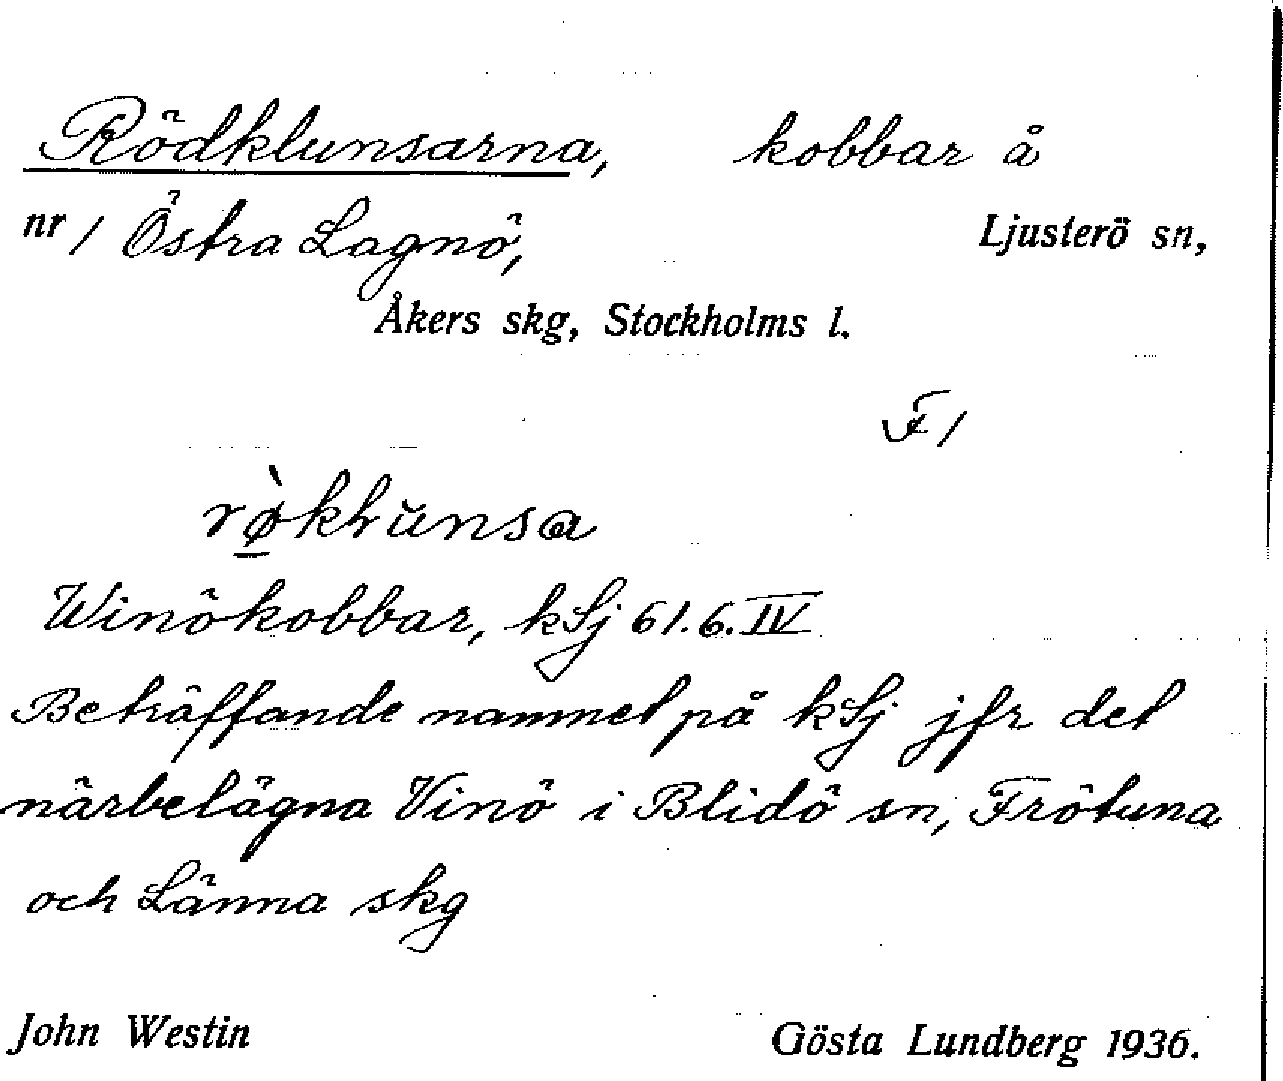 Rödklunsarna, kobbar å
nr 1 Östra Lagnö, Ljusterö sn,
Åkers skg, Stockholms l.
F 1
rø̀klunsa
Winökobbar, kSj 61.6.IV
Beträffande namnet på kSj jfr det
närbelägna Vinö i Blidö sn, Frötuna
och Länna skg
John Westin Gösta Lundberg 1936.